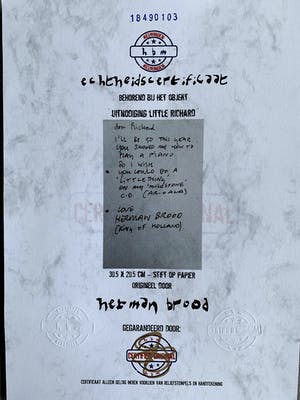 18490103
hbm
echtheidscertificaat
BEHOREND BIJ HET OBJEKT
UITNODIGING LITTLE RICHARD
Richard
I'LL BE 50 THIS YEAR
YOU SHOWED ME HOW TO
PLAY A PIANO
SO I WISH
YOU COULD DO A
"LITTLE THING"
ON MY "MILESTONE"
C.D. (ARIOLA)
LOVE
HERMAN BROOD
(KING OF HOLLAND)
30.5 X 20.5 CM – STIFT OP PAPIER
ORIGINEEL DOOR
herman brood
GEGARANDEERD DOOR:
CERTIFIED ORIGINAL
CERTIFICAAT ALLEEN GELDIG INDIEN VOORZIEN VAN RELIEFSTEMPELS EN HANDTEKENING